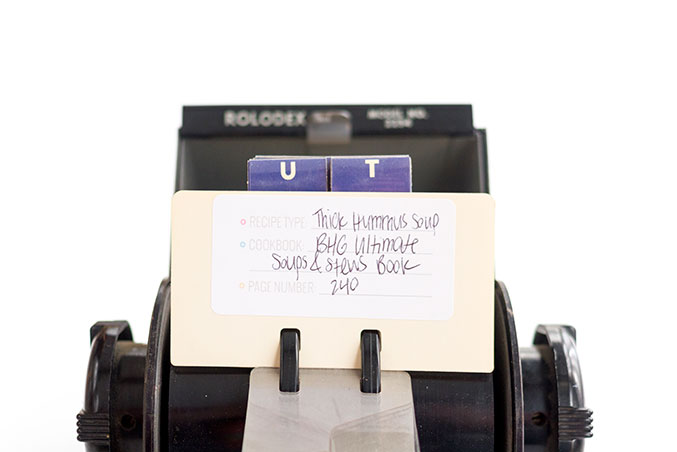 ROLODEX MODEL NO.
U T
RECIPE TYPE: Thick Hummus Soup
COOKBOOK: BHG Ultimate
Soups & Stews Book
PAGE NUMBER: 240